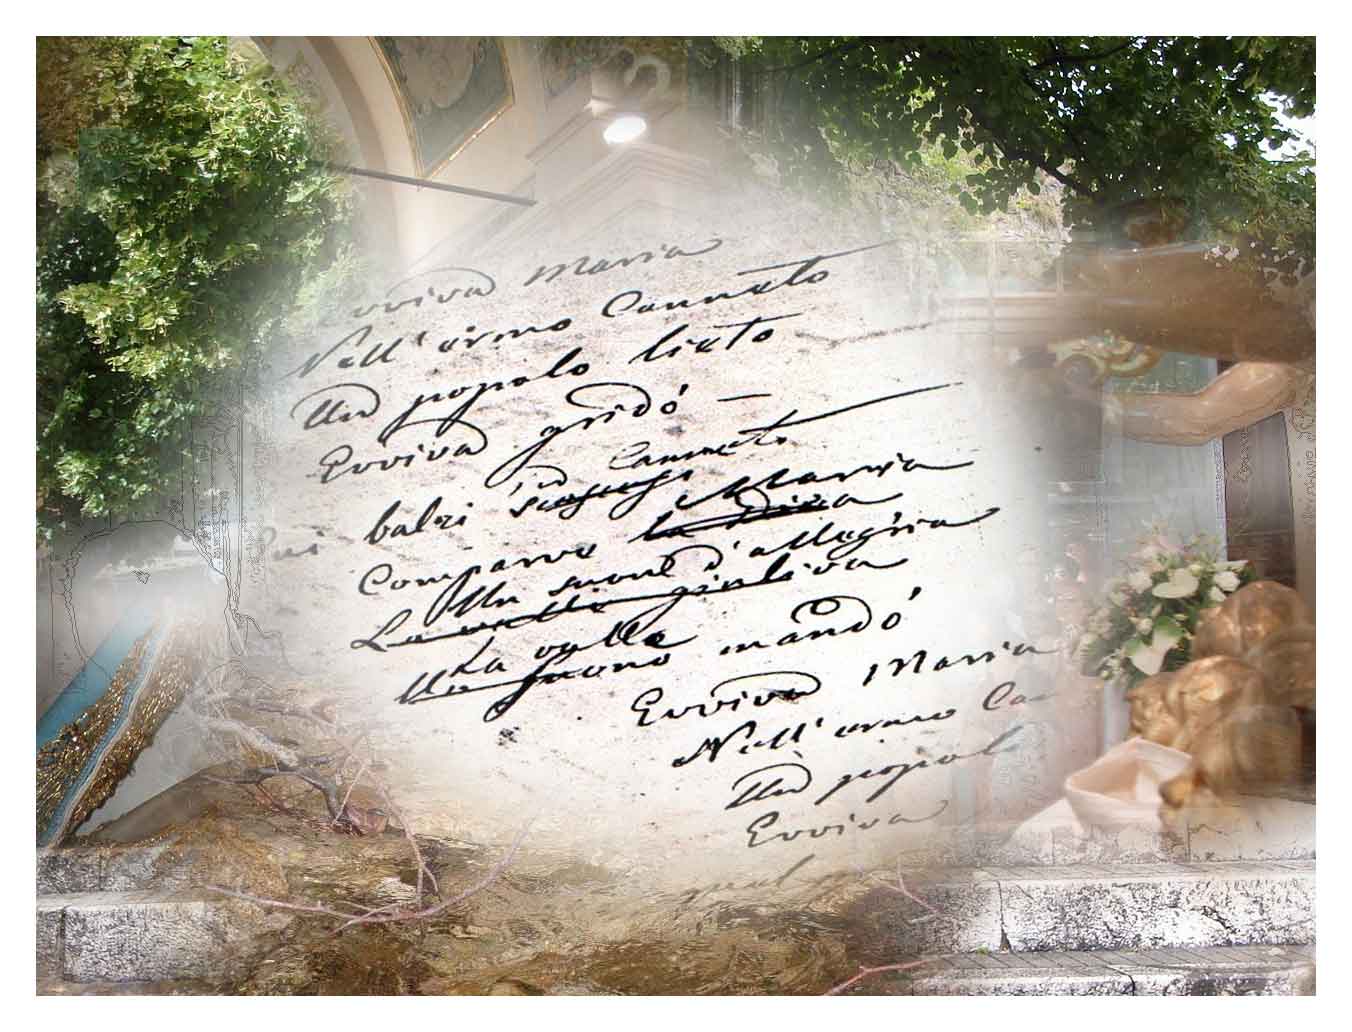 Evviva Maria
Nell'ermo Canneto
Un popolo lieto
Evviva gridò —
Canneto
balzi
Comparve la Diva Maria
Un suono d'allegria
La valle giuliva
La valle
Un suono mandò
Evviva Maria
Nell'ermo Ca
Un popol
Evviva
qual